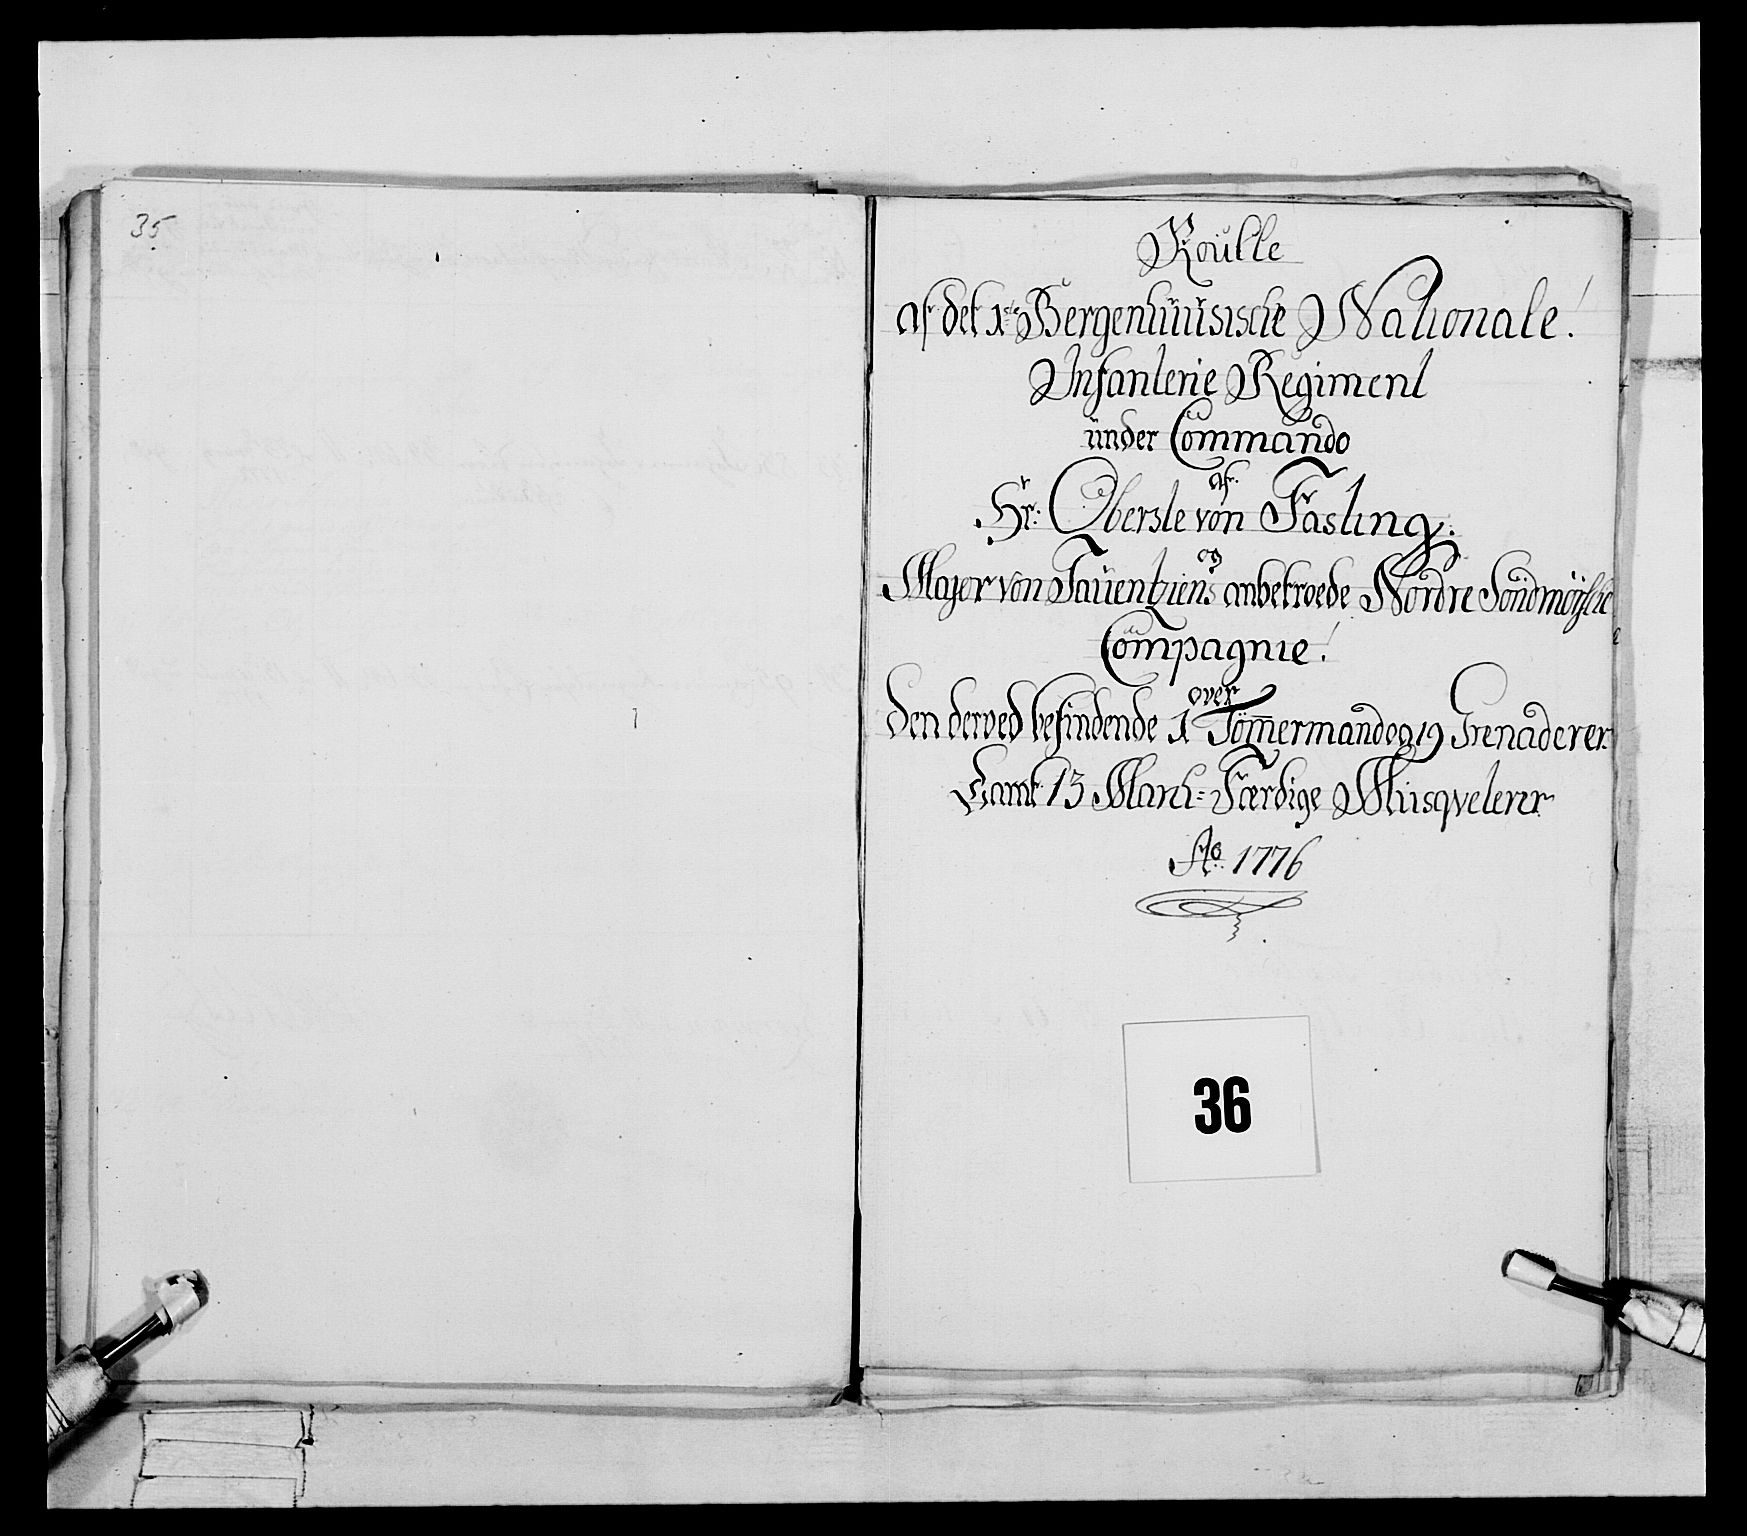 35
Roulle
af det 1ste Bergenhuusische Nationale!
Infanterie Regiment
under Commando
af
Hr: Oberste von Fasting.
og
Major von Tauentziens anbetroede Nordre Söndmörsche
Compagnie!
over
Den derved befindende 1 Tömmermand og 19 Grenaderer
Samt 13 March-Færdige Musqveterer
Ao 1776
36